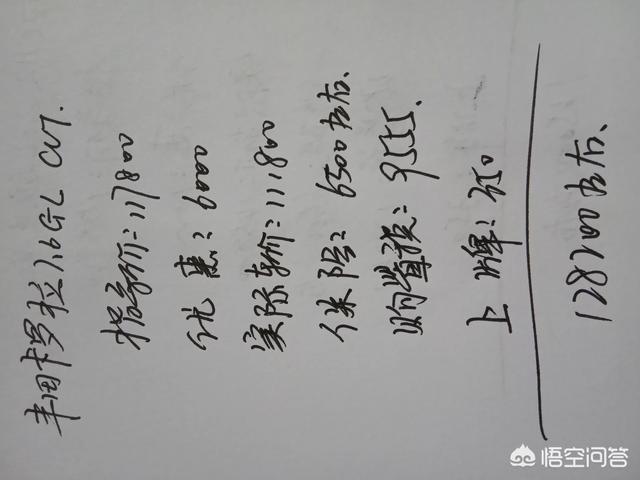 丰田卡罗拉1.6GL CVT.
指导价：117800
优惠：6000
实际车价：111,800
保险：6500左右、
购置税：9555.
上牌：250
128200左右、
悟空问答